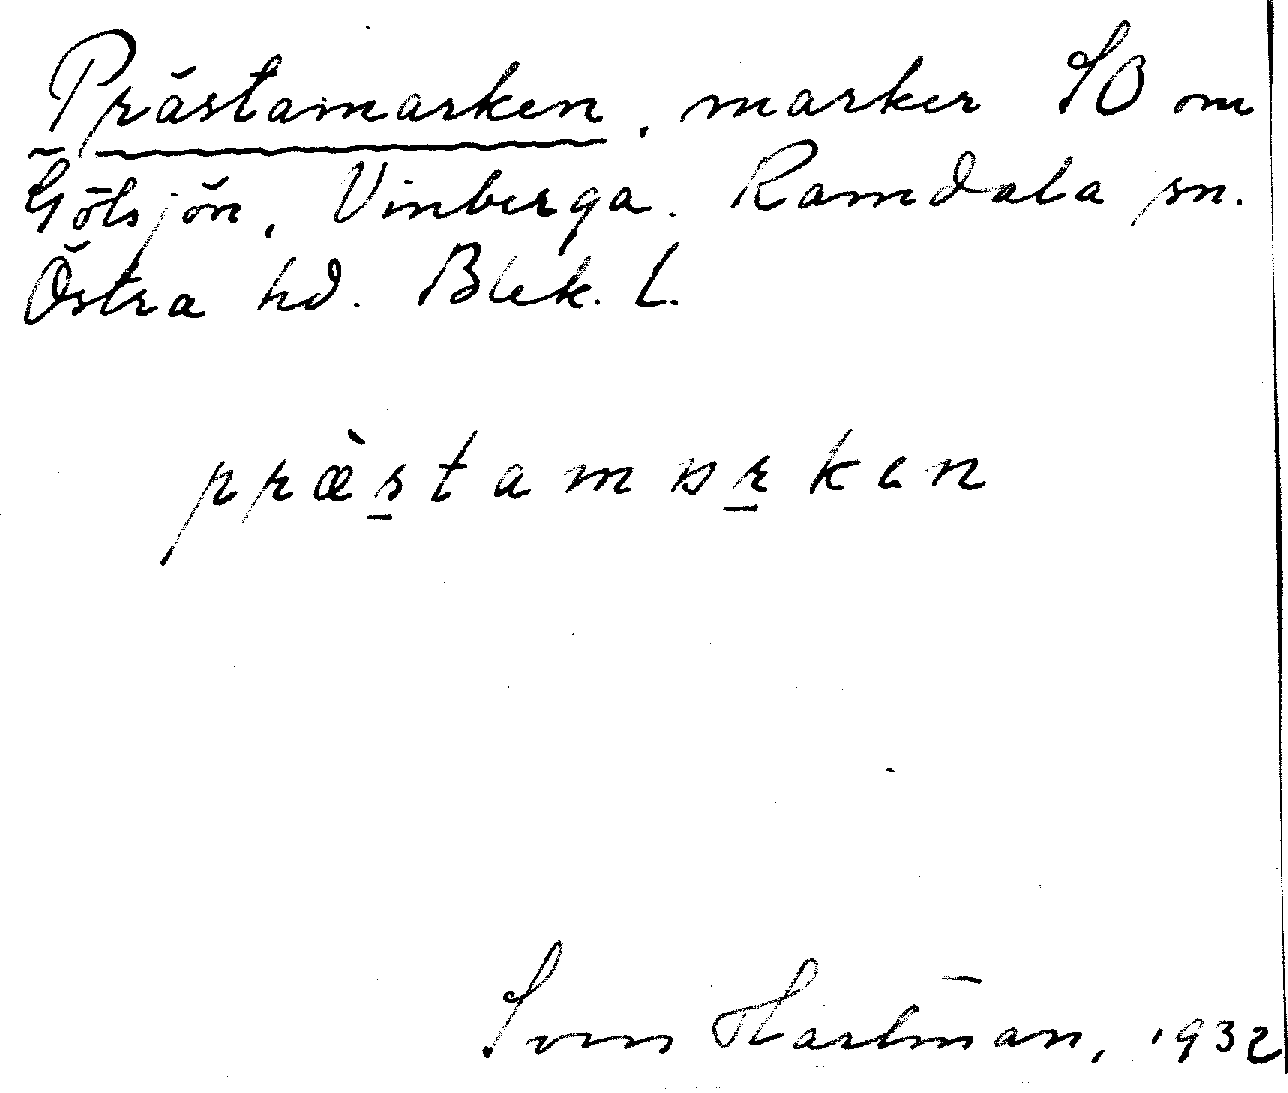 Prästamarken, marker SO om
Gölsjön, Vinberga. Ramdala sn.
Östra hd. Blek. L.
præ̀s̲tamɒr̲kɩn
Sven Hartman, 1932